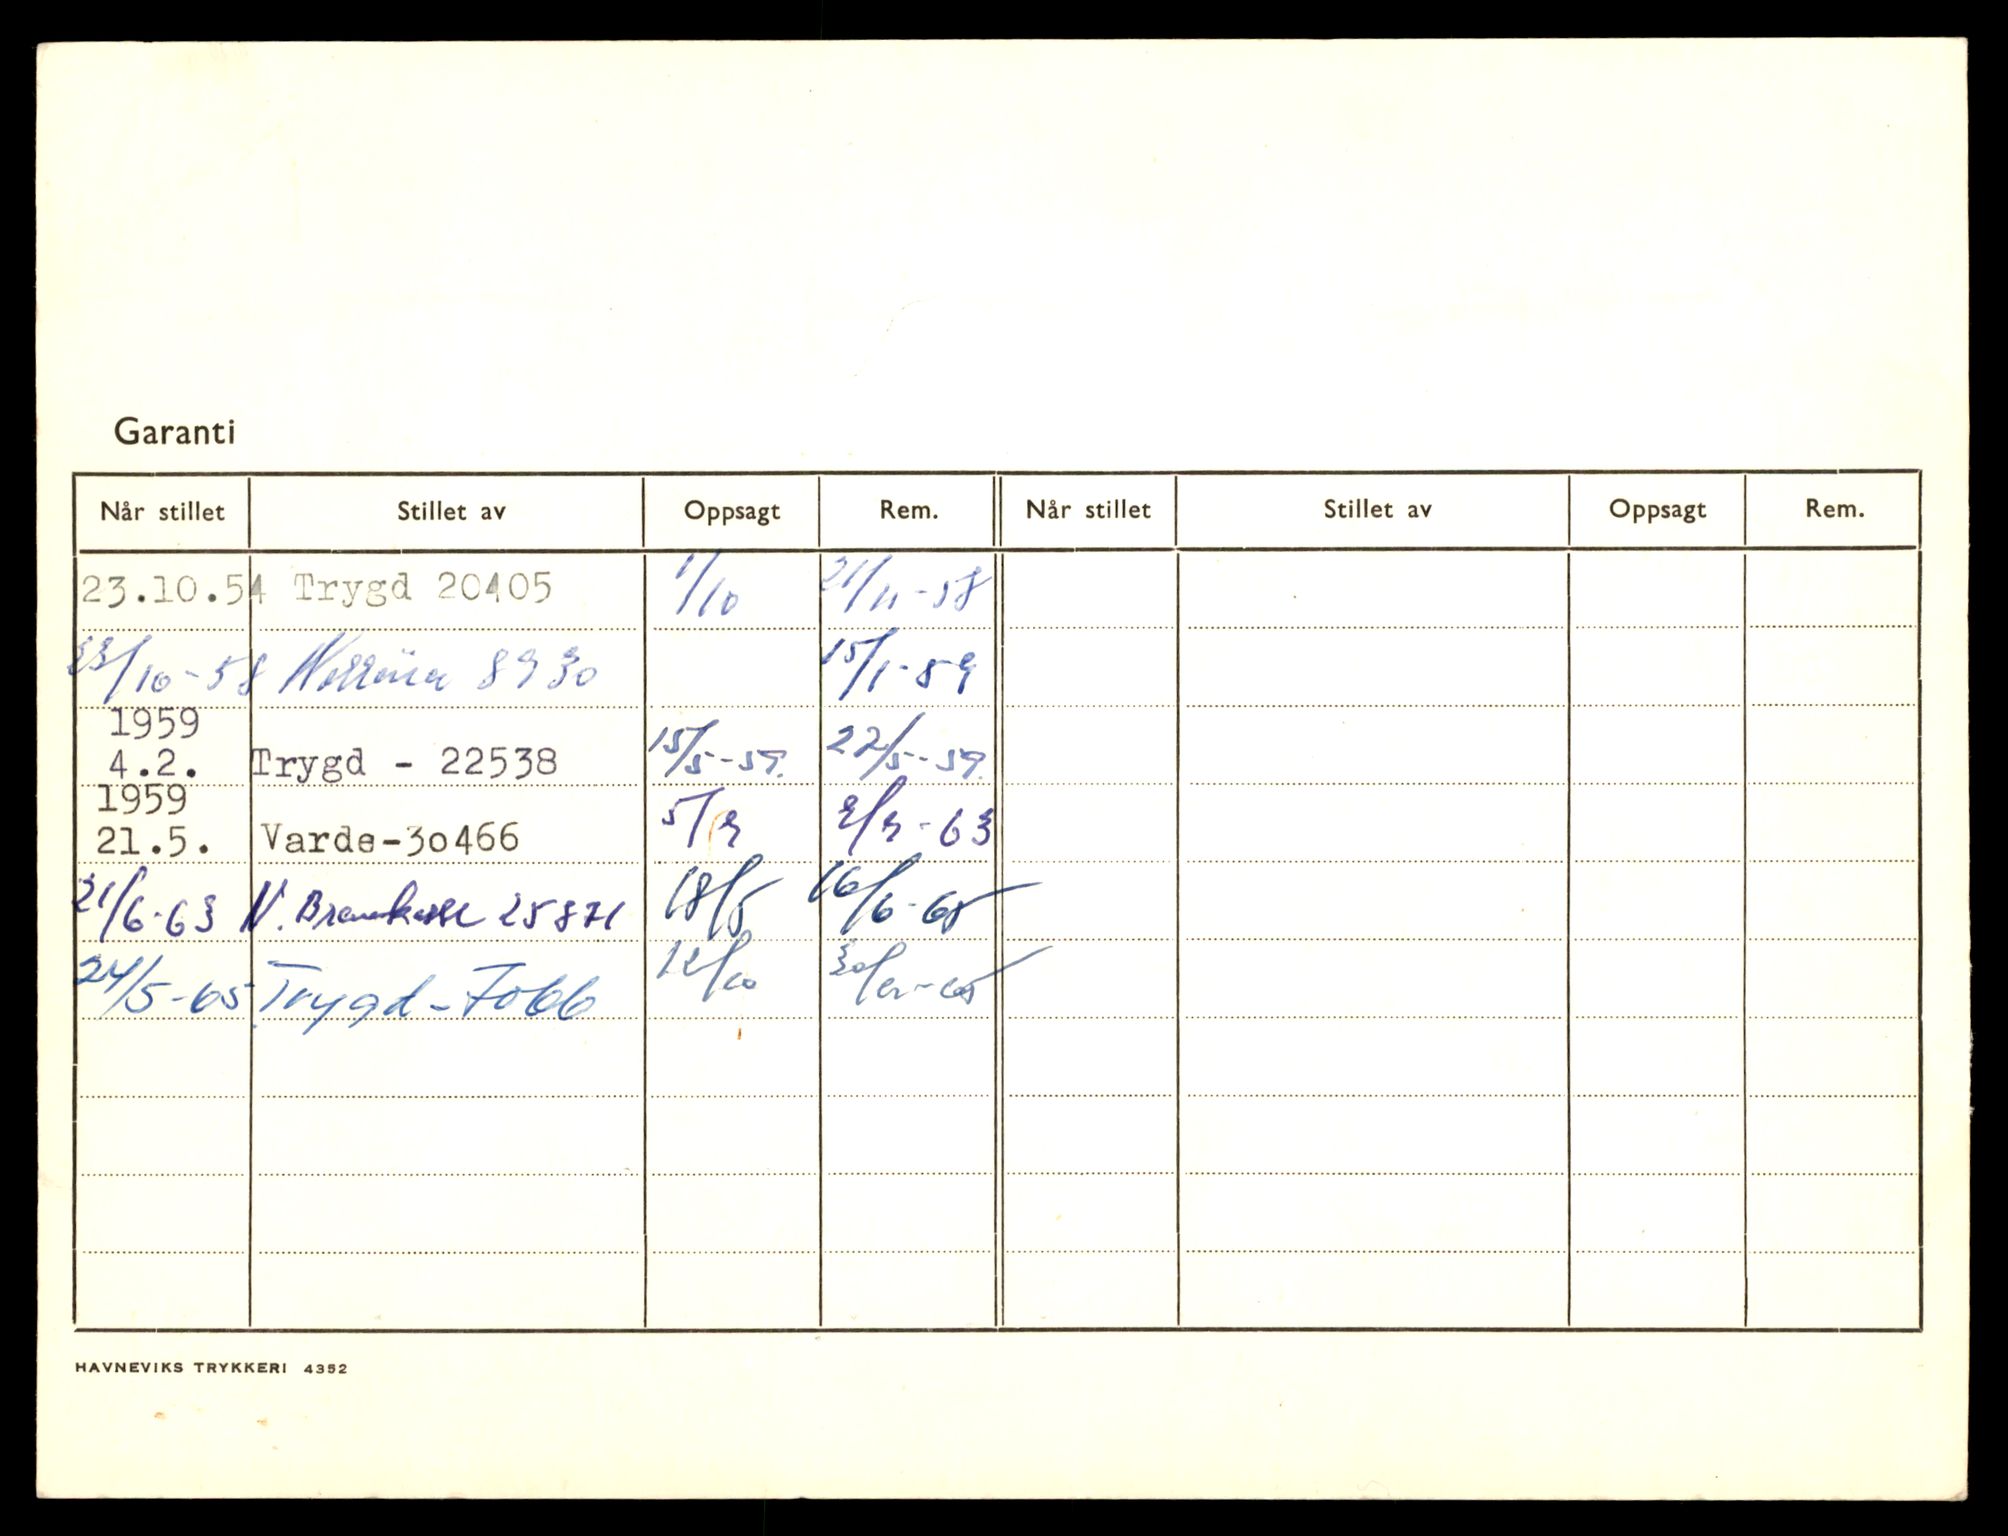 Garanti
Når stillet Stillet av Oppsagt Rem. Når stillet Stillet av Oppsagt Rem.
23.10.54 Trygd 20405 1/10 21/11-58
23/10-58 8930 15/1-59
1959
4.2. Trygd - 22538 15/5-59. 22/5-59.
1959
21.5. Varde-30466 5/9 9/9-63
21/6-63 N. Brannkasse 25871 18/5 16/6-65
24/5-65 Trygd - 7066 12/10 30/12-65
HAVNEVIKS TRYKKERI 4352